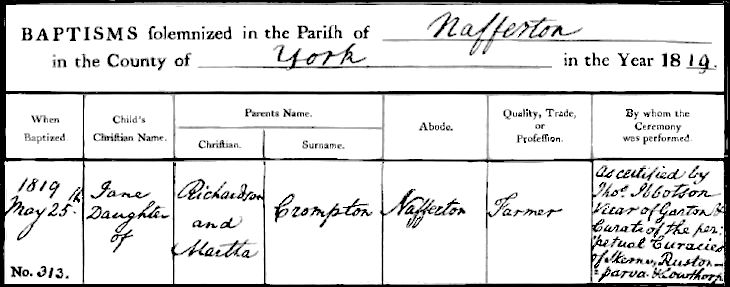 BAPTISMS ſolemnized in the Pariſh of Nafferton
in the County of York in the Year 1819.
When
Baptized.
Child's
Chriſtian Name.
Parents Name.
Chriſtian.
Surname.
Abode.
Quality, Trade,
or
Profeſſion.
By whom the
Ceremony
was performed.
1819
May 25th
No. 313.
Jane
Daughter
of
Richardson
and
Martha
Crompton
Nafferton
Farmer
as certified by
Thos. Ibbotson
Vicar of Garton &
Curate of the per-
petual Curacies
of Skerne, Ruston-
parva & Lowthorp